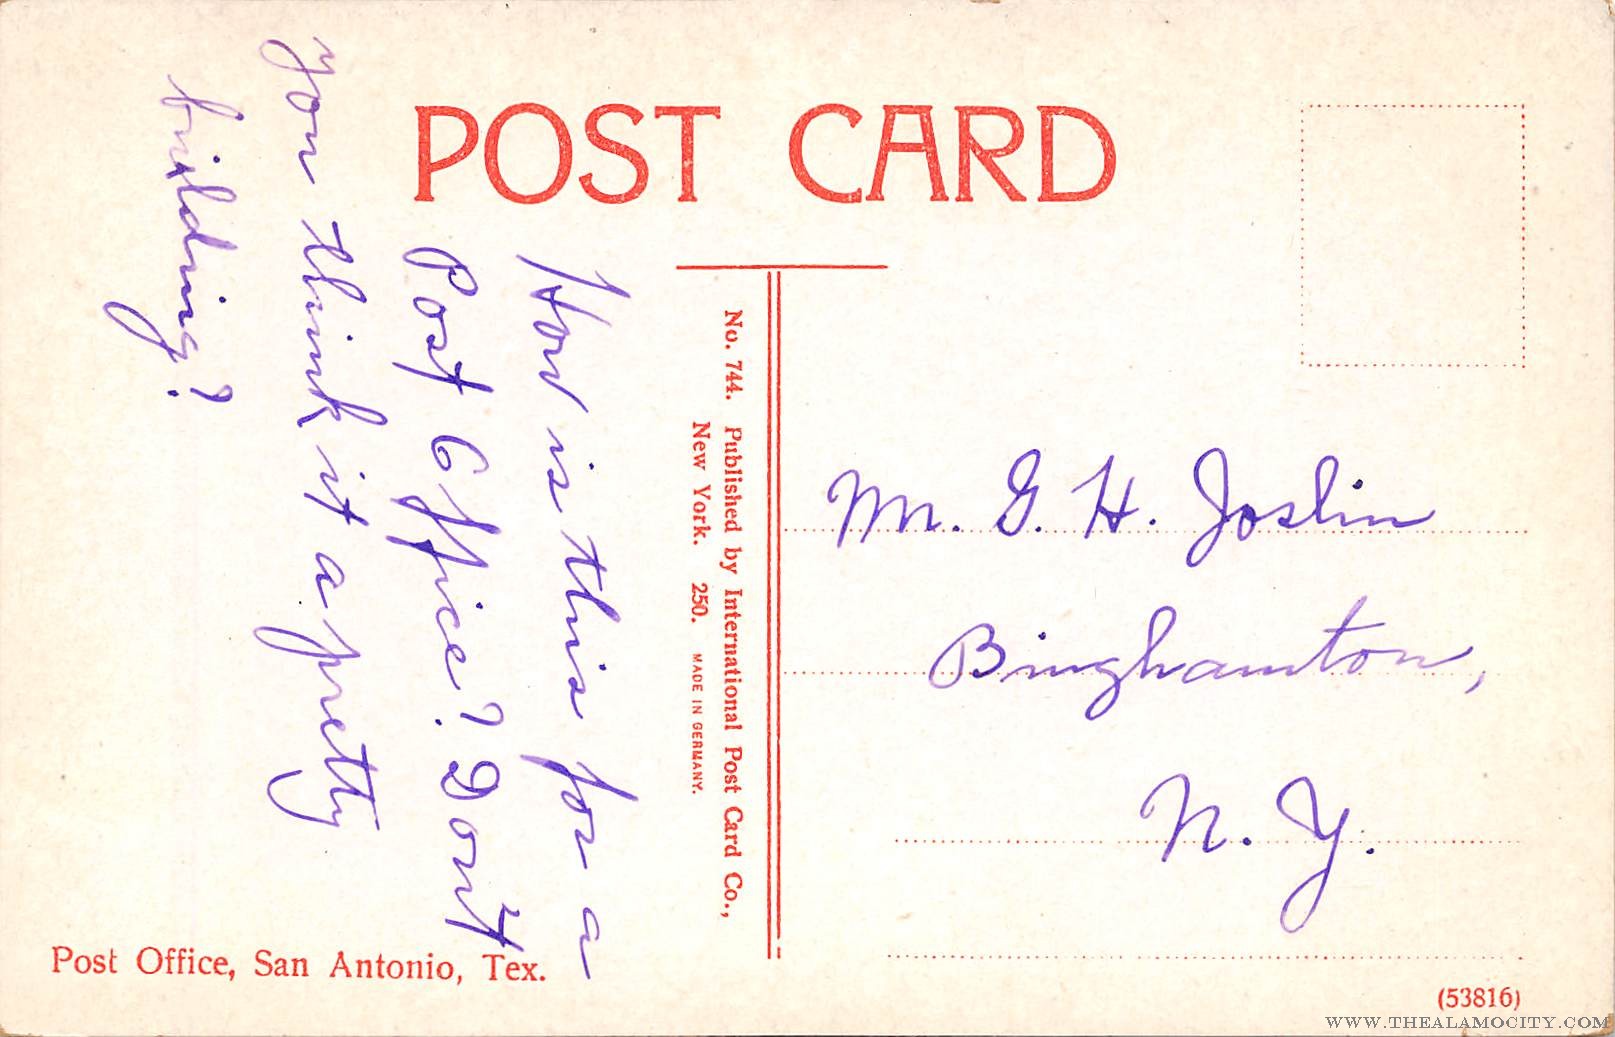 POST CARD
How is this for a
Post Office? Don't
you think it a pretty
building?
No. 744. Published by International Post Card Co.,
New York. 250. MADE IN GERMANY.
Mr. G. H. Joslin
Binghamton,
N. Y.
Post Office, San Antonio, Tex.
(53816)
WWW.THEALAMOCITY.COM